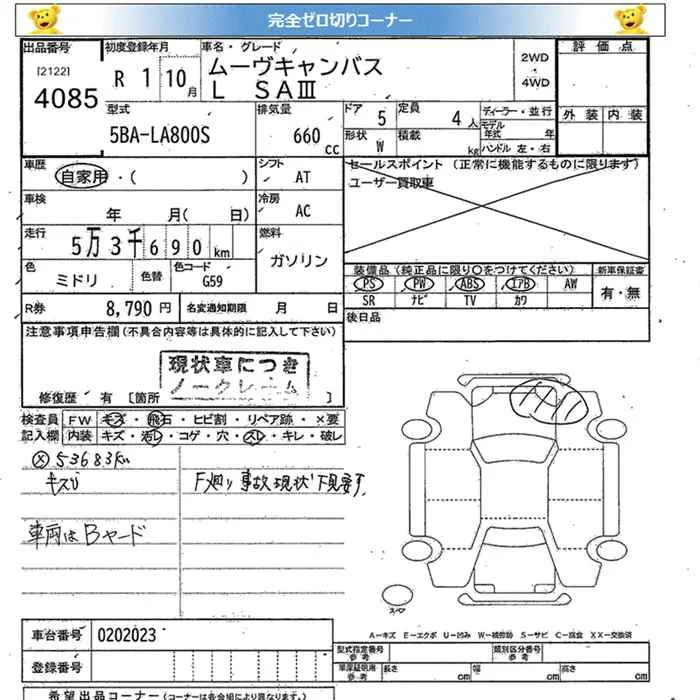 完全ゼロ切りコーナー
出品番号 初度登録年月 車名・グレード 評価点
[2122] R 1 10月 ムーヴキャンバス 2WD
4085 L SAⅢ 4WD
型式 排気量 ドア 5 定員 4人 ディーラー・並行 外装 内装
モデル年式 年
5BA-LA800S 660cc 形状 W 積載 kg ハンドル 左・右
車歴 自家用・( ) シフト AT セールスポイント (正常に機能するものに限ります)
ユーザー買取車
車検 年 月( 日) 冷房 AC
走行 5万3千690km 燃料 ガソリン
色 ミドリ 色替 色コード G59 装備品 (純正品に限り○をつけてください) 新車保証書
PS PW ABS エアB AW 有・無
SR ナビ TV カワ
R券 8,790円 名変通知期限 月 日 後日品
注意事項申告欄(不具合内容等は具体的に記入して下さい)
現状車につき
ノークレーム
修復歴 有 [箇所 ]
検査員 FW キズ・飛石・ヒビ割・リペア跡・×要
記入欄 内装 キズ・汚レ・コゲ・穴・スレ・キレ・破レ
53683Km
F廻り事故現状 下見要す
車両はBヤード
スペア
A－キズ E－エクボ U－凹み W－補修跡 S－サビ C－腐食 XX－交換済
車台番号 0202023
型式指定番号 参考 類別区分番号 参考
登録番号 車庫証明用 参考 長さ cm 幅 cm 高さ cm
希望出品コーナー (コーナーは各会場により異なります。)